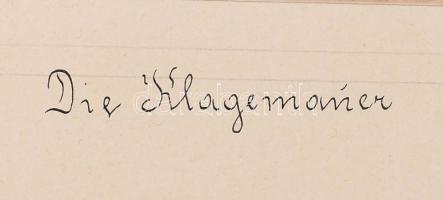 Die Klagemauer